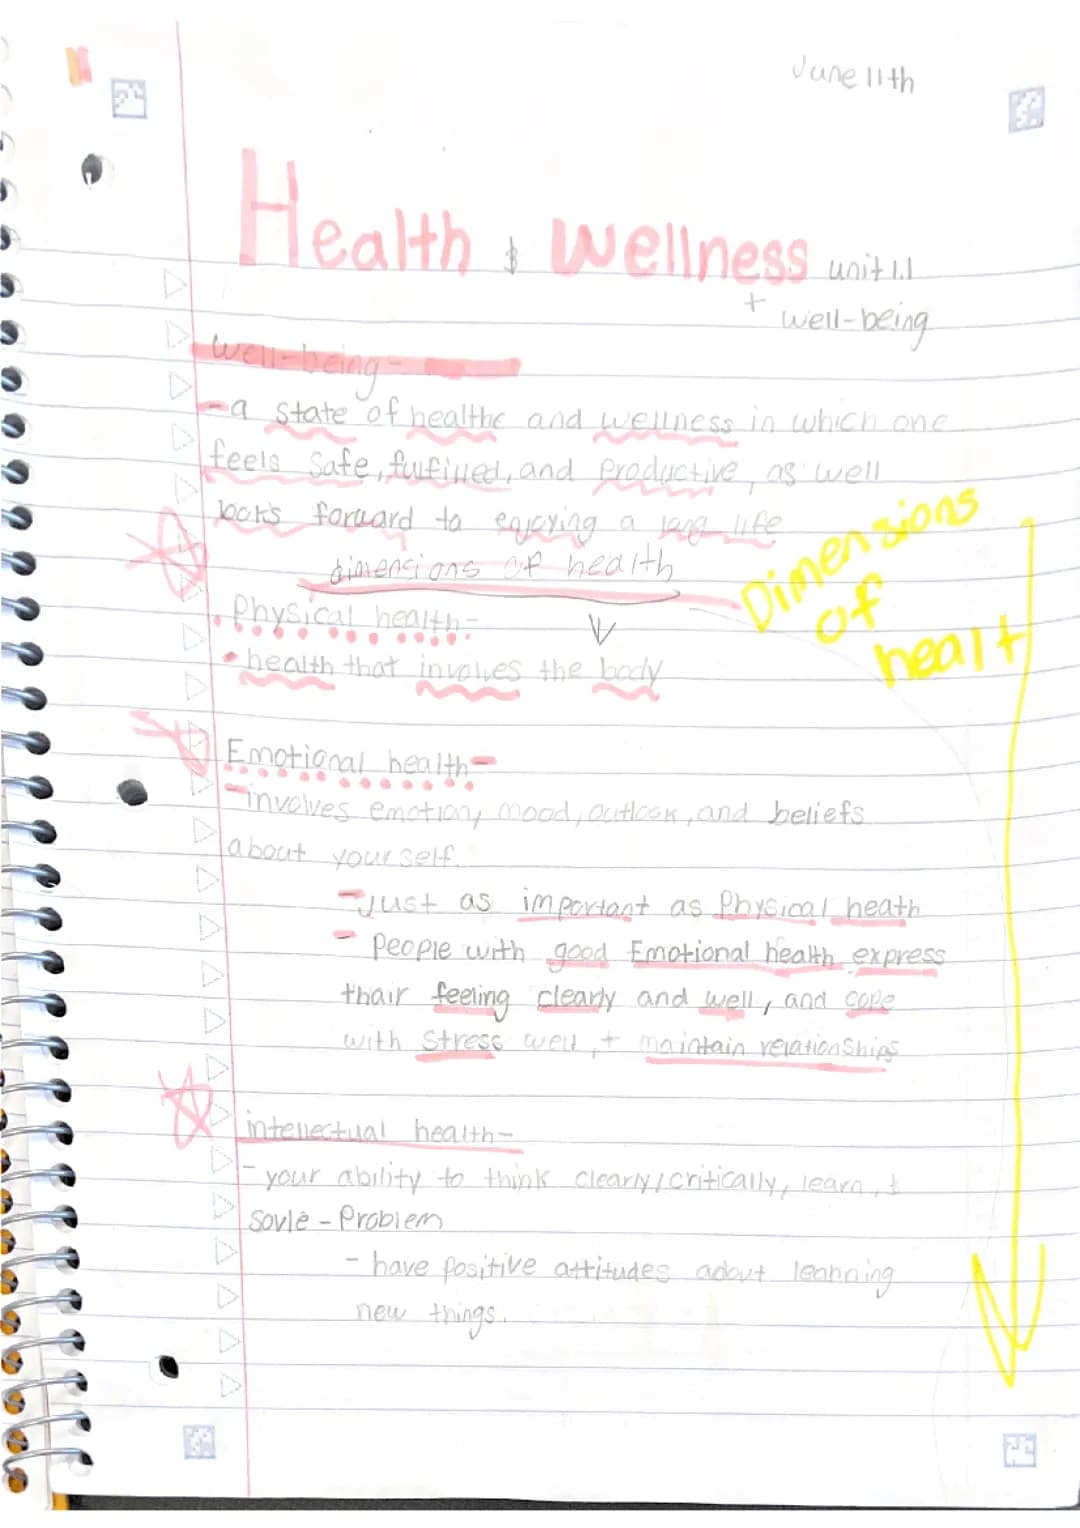 June 11th
Health & Wellness unit 1.1
+ well-being
well-being-
-a state of healthe and wellness in which one
feels safe, fulfilled, and productive, as well
looks forward to enjoying a long life
dimensions of health
Dimensions
of
healt
Physical health-
• health that involves the body
Emotional health-
-involves emotion, mood, outlook, and beliefs
about yourself.
-Just as important as Physical heath
- People with good Emotional health express
thair feeling clearly and well, and cope
with stress well, + maintain relationships
intellectual health-
- your ability to think clearly, critically, learn, &
sovle - Problem
- have positive attitudes adout learning
new things.